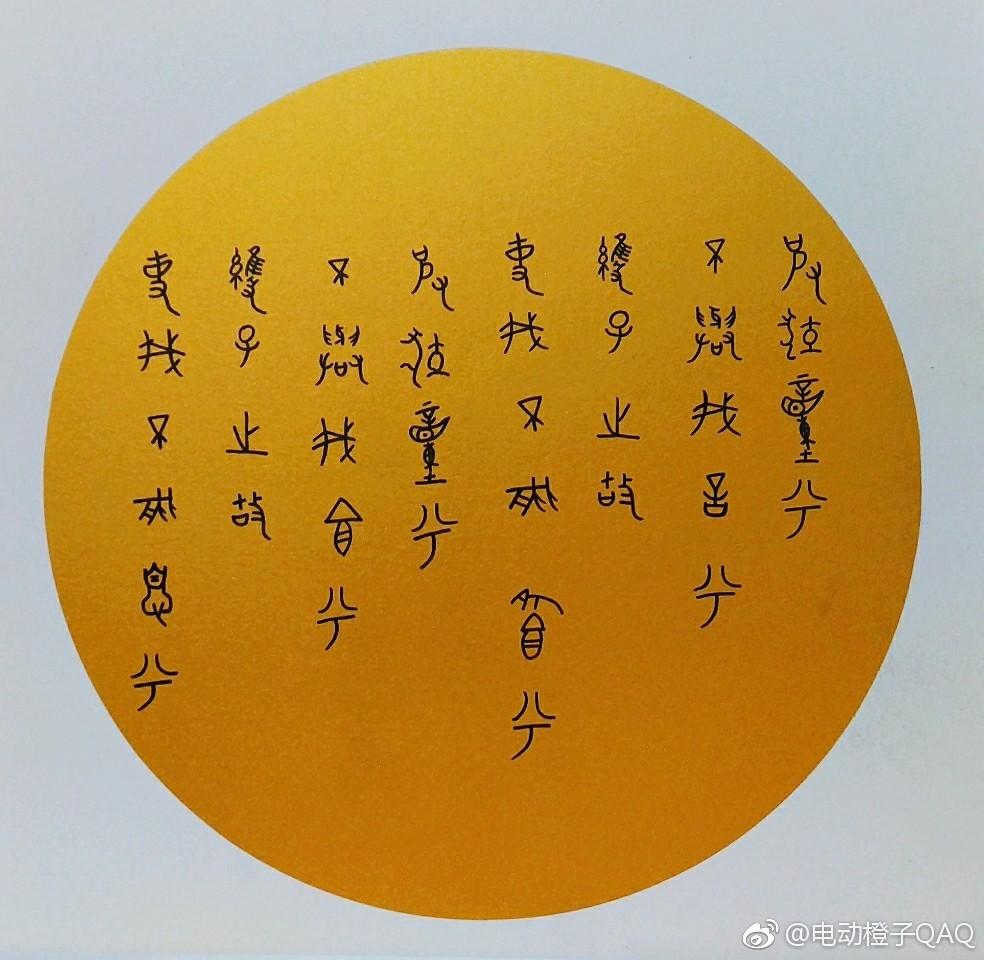 彼狡童兮
不與我言兮
維子之故
使我不能餐兮
彼狡童兮
不與我食兮
維子之故
使我不能息兮
@电动橙子QAQ